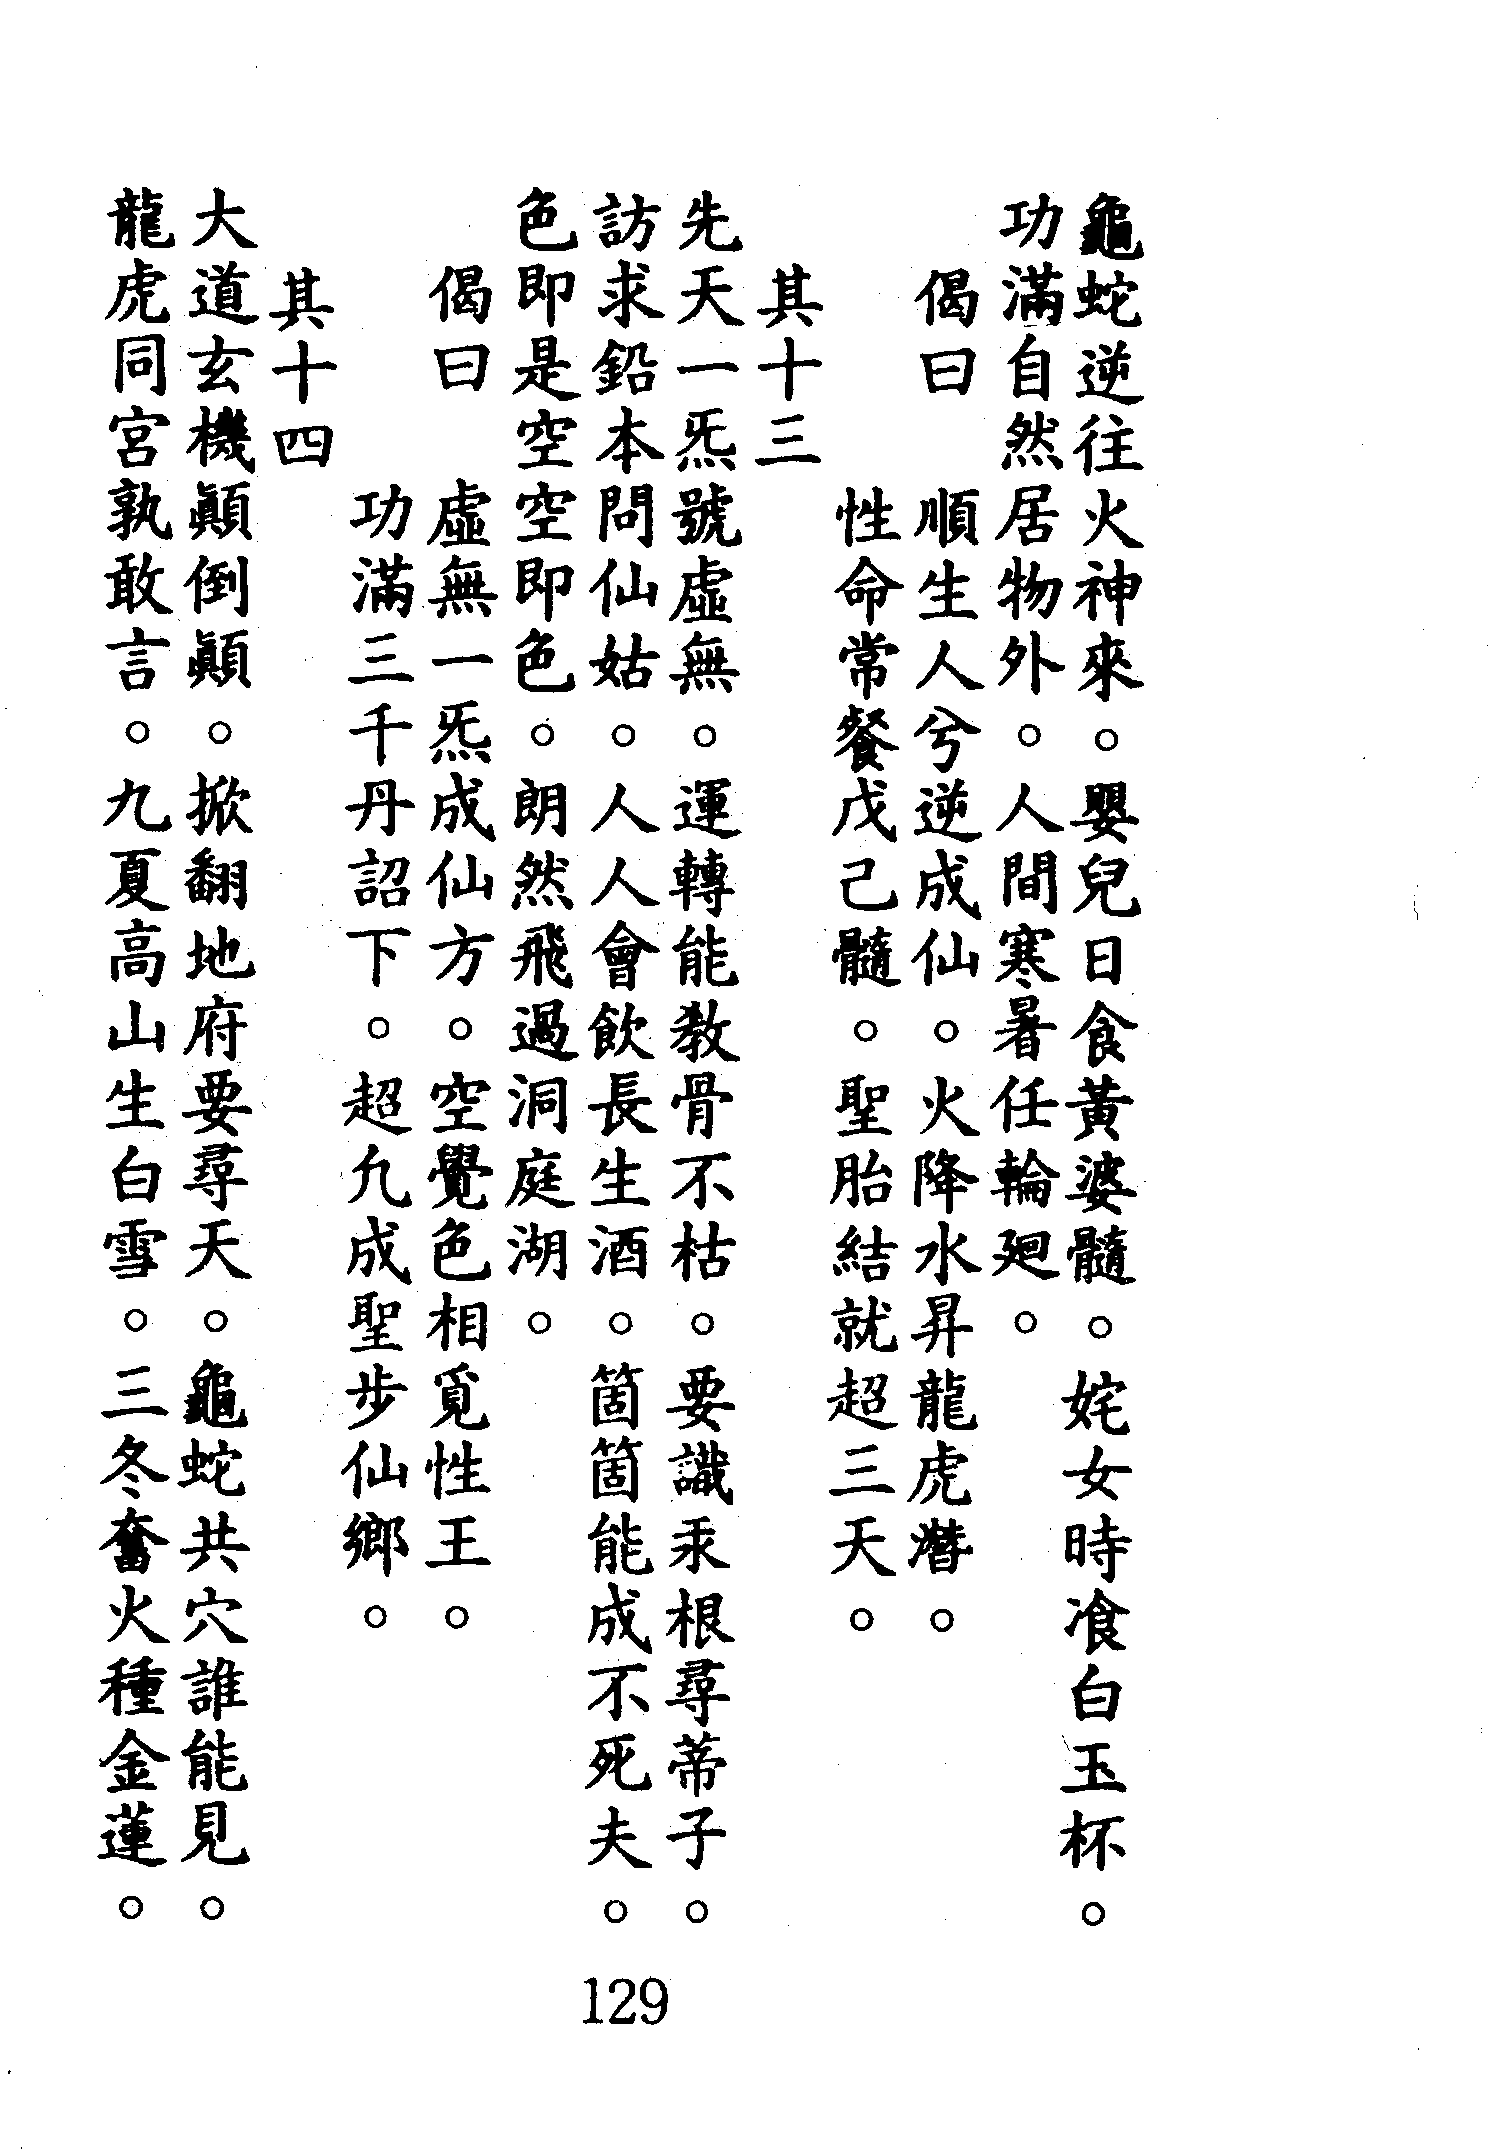 龜蛇逆往火神來。嬰兒日食黃婆髓。姹女時飡白玉杯。
功滿自然居物外。人間寒暑任輪廻。
偈曰　順生人兮逆成仙。火降水昇龍虎潛。
性命常餐戊己髓。聖胎結就超三天。
其十三
先天一炁號虛無。運轉能教骨不枯。要識汞根尋蒂子。
訪求鉛本問仙姑。人人會飲長生酒。箇箇能成不死夫。
色即是空空即色。朗然飛過洞庭湖。
偈曰　虛無一炁成仙方。空覺色相覓性王。
功滿三千丹詔下。超凡成聖步仙鄉。
其十四
大道玄機顚倒顚。掀翻地府要尋天。龜蛇共穴誰能見。
龍虎同宮孰敢言。九夏高山生白雪。三冬奮火種金蓮。
129